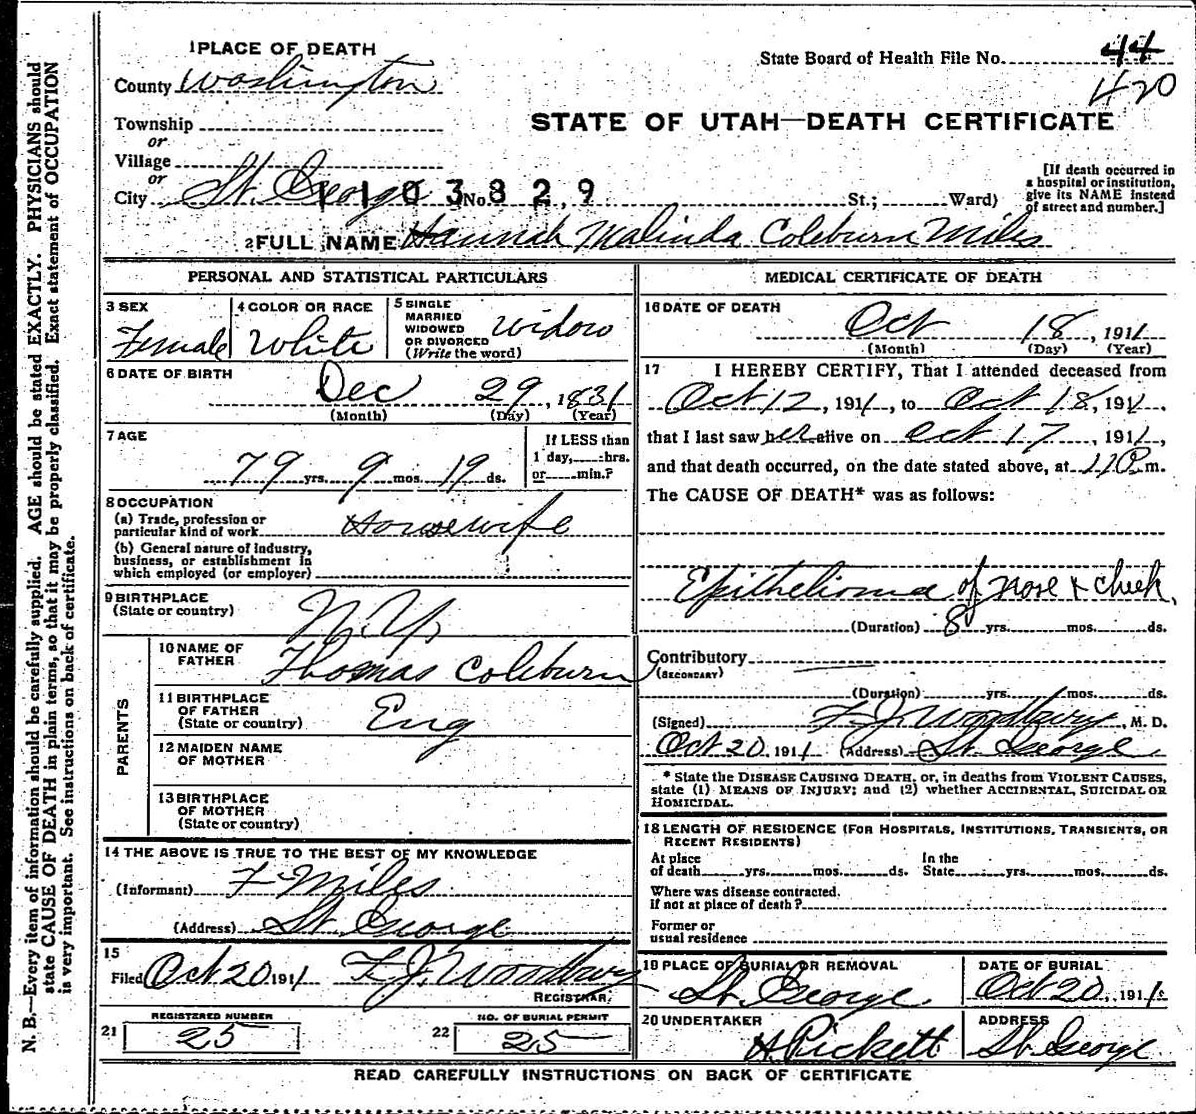 N. B.—Every item of information should be carefully supplied. AGE should be stated EXACTLY. PHYSICIANS should
state CAUSE OF DEATH in plain terms, so that it may be properly classified. Exact statement of OCCUPATION
is very important. See instructions on back of certificate.
1 PLACE OF DEATH
County Washington
Township
or
Village
or
City St. George No. St.; Ward)
1103829
State Board of Health File No. 44
420
STATE OF UTAH—DEATH CERTIFICATE
[If death occurred in
a hospital or institution,
give its NAME instead
of street and number.]
2 FULL NAME Hannah Malinda Coleburn Miles
PERSONAL AND STATISTICAL PARTICULARS
3 SEX Female
4 COLOR OR RACE White
5 SINGLE
MARRIED
WIDOWED
OR DIVORCED
(Write the word)
Widow
6 DATE OF BIRTH
Dec 29, 1831
(Month) (Day) (Year)
7 AGE
79 yrs. 9 mos. 19 ds.
If LESS than
1 day, hrs.
or min.?
8 OCCUPATION
(a) Trade, profession or
particular kind of work Housewife
(b) General nature of industry,
business, or establishment in
which employed (or employer)
9 BIRTHPLACE
(State or country) N.Y.
PARENTS
10 NAME OF
FATHER Thomas Coleburn
11 BIRTHPLACE
OF FATHER
(State or country) Eng
12 MAIDEN NAME
OF MOTHER
13 BIRTHPLACE
OF MOTHER
(State or country)
14 THE ABOVE IS TRUE TO THE BEST OF MY KNOWLEDGE
(Informant) F Miles
(Address) St. George
15
Filed Oct 20 1911 F. J. Woodbury
REGISTRAR
21 REGISTERED NUMBER
25
22 NO. OF BURIAL PERMIT
25
MEDICAL CERTIFICATE OF DEATH
16 DATE OF DEATH
Oct 18, 1911
(Month) (Day) (Year)
17 I HEREBY CERTIFY, That I attended deceased from
Oct 12, 1911, to Oct 18, 1911,
that I last saw her alive on Oct 17, 1911,
and that death occurred, on the date stated above, at 11 P.m.
The CAUSE OF DEATH* was as follows:
Epithelioma of nose & cheek,
(Duration) 8 yrs. mos. ds.
Contributory
(SECONDARY)
(Duration) yrs. mos. ds.
(Signed) F. J. Woodbury, M. D.
Oct 20, 1911 (Address) St. George
* State the DISEASE CAUSING DEATH, or, in deaths from VIOLENT CAUSES,
state (1) MEANS OF INJURY; and (2) whether ACCIDENTAL, SUICIDAL OR
HOMICIDAL.
18 LENGTH OF RESIDENCE (FOR HOSPITALS, INSTITUTIONS, TRANSIENTS, OR
RECENT RESIDENTS)
At place
of death yrs. mos. ds.
In the
State yrs. mos. ds.
Where was disease contracted.
if not at place of death?
Former or
usual residence
19 PLACE OF BURIAL OR REMOVAL
St. George
DATE OF BURIAL
Oct 20, 1911
20 UNDERTAKER
H Pickett
ADDRESS
St. George
READ CAREFULLY INSTRUCTIONS ON BACK OF CERTIFICATE